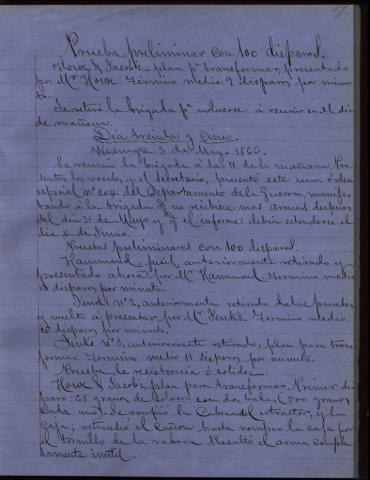 Prueba preliminar con 100 disparos.
Howe & Jacobs, plan pª transformar, presentado
por Mr. Howe. Termino medio 9 disparos por minu-
to.
Se retiró la brigada pª volverse á reunir en el dia
de mañana.
Dia treinta y Cinco.
Washington 3 de Mayo 1866.
Se reunió la brigada á las 11 de la mañana. Pre-
sentes los vocales y el Secretario, presentó este una órden
especial Nº 204 del Departamento de la Guerra, manifes-
tando á la brigada q. no recibiese mas armas despues
del dia 21 de Mayo y q. el informe debia estenderse el
dia 4 de Junio.
Pruebas preliminares con 100 disparos.
Hammond, fusil anteriormente retirado y
presentado ahora por Mr. Hammond. Termino medio
disparos por minuto.
Jenks Nº 2, anteriormente retirado de las pruebas
y vuelto á presentar por Mr. Jenks. Termino medio
disparos por minuto.
Jenks Nº 3, anteriormente retirado, plan para trans-
formar. Termino medio 11 disparos por minuto.
Prueba de resistencia ó solidez.
Howe & Jacobs, plan para transformar. Primer dis-
paro: 65 granos de polvora con dos balas, (500 granos
cada una). Se rompió la extractor, y la
caja; retrocedió el cañon hasta romper la caja por
el tornillo de la rabera. Resultó el arma comple-
tamente inutil.